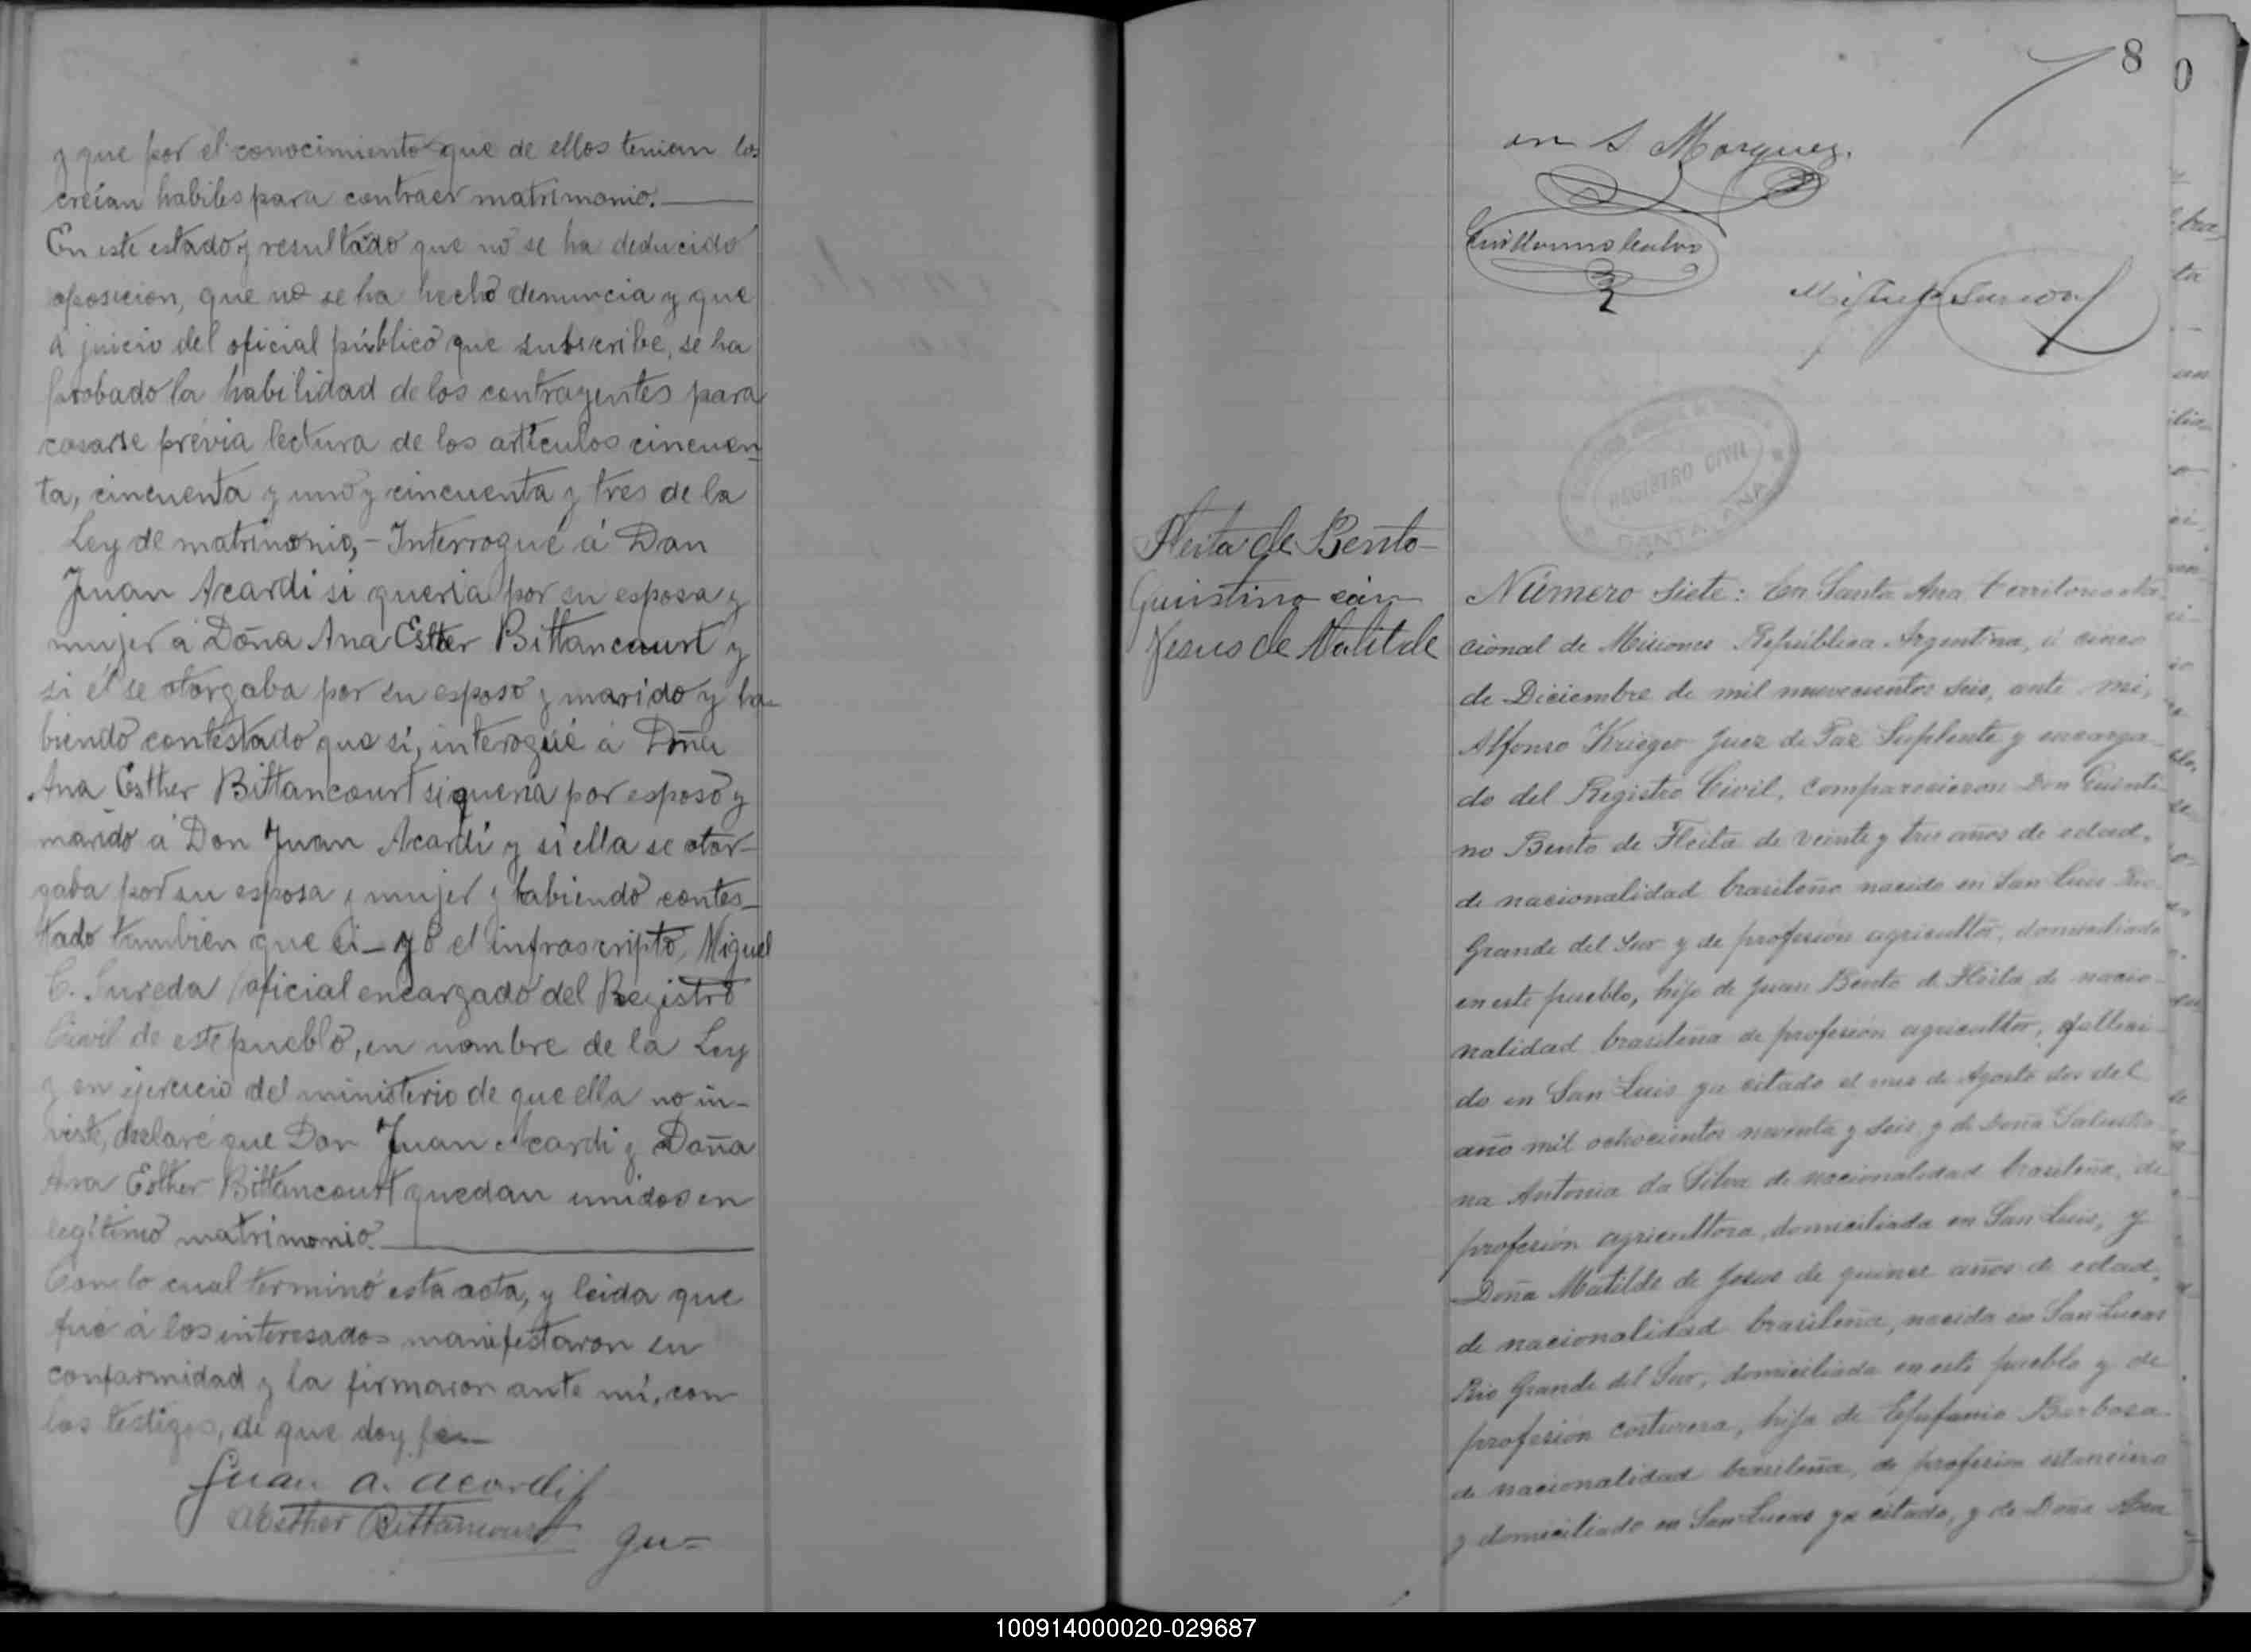 y que por el conocimiento que de ellos tenian los
creian habiles para contraer matrimonio.
En este estado y resultado que no se ha deducido
oposicion, que no se ha hecho denuncia y que
á juicio del oficial público que subscribe, se ha
probado la habilidad de los contrayentes para
casarse prévia lectura de los artículos cincuen
ta, cincuenta y uno y cincuenta y tres de la
Ley de matrimonio, - Interrogué á Don
Juan Acardi si queria por su esposa y
mujer á Doña Ana Esther Bittancourt y
si él se otorgaba por su esposo y marido y ha-
biendo contestado que sí, interogué á Doña
Ana Esther Bittancourt si queria por esposo y
marido á Don Juan Acardi y si ella se otor-
gaba por su esposa y mujer y habiendo contes-
tado tambien que si - yo el infrascripto, Miguel
C. Sureda oficial encargado del Registro
Civil de este pueblo, en nombre de la Ley
y en ejercicio del ministerio de que ella no in-
viste, declaré que Don Juan Acardi y Doña
Ana Esther Bittancourt quedan unidos en
legítimo matrimonio.
Con lo cual terminó esta acta, y leida que
fué á los interesados manifestaron su
conformidad y la firmaron ante mí, con
los testigos, de que doy fe
Juan A. Acardi
AEsther Bittancourt Gu=
8
0
an S Marquez.
REGISTRO CIVIL
SANTA ANA
Fleita de Bento
Quintino con
Jesus de Matilde
Número Siete: En Santa Ana Territorio Na-
cional de Misiones República Argentina, á cinco
de Diciembre de mil nuevecientos seis, ante mi,
Alfonso Krieger Juez de Paz Suplente y encarga-
do del Registro Civil, comparecieron Don Quinti-
no Bento de Fleita de veinte y tres años de edad,
de nacionalidad brasileña nacido en San Luis Rio
Grande del Sur y de profesion agricultor, domiciliado
en este pueblo, hijo de Juan Bento de Fleita de nacio-
nalidad brasileña de profesion agricultor, falleci-
do en San Luis ya citado el mes de Agosto dos del
año mil ochocientos noventa y seis, y de Doña Salustia-
na Antonia da Silva de nacionalidad brasileña, de
profesion agricultora, domiciliada en San Luis, y
Doña Matilde de Jesus de quince años de edad,
de nacionalidad brasileña, nacida en San Lucas
Rio Grande del Sur, domiciliada en este pueblo y de
profesion costurera, hija de Epifanio Barbosa
de nacionalidad brasileña, de profesion estanciero
y domiciliado en San Lucas ya citado, y de Doña Ana
100914000020-029687